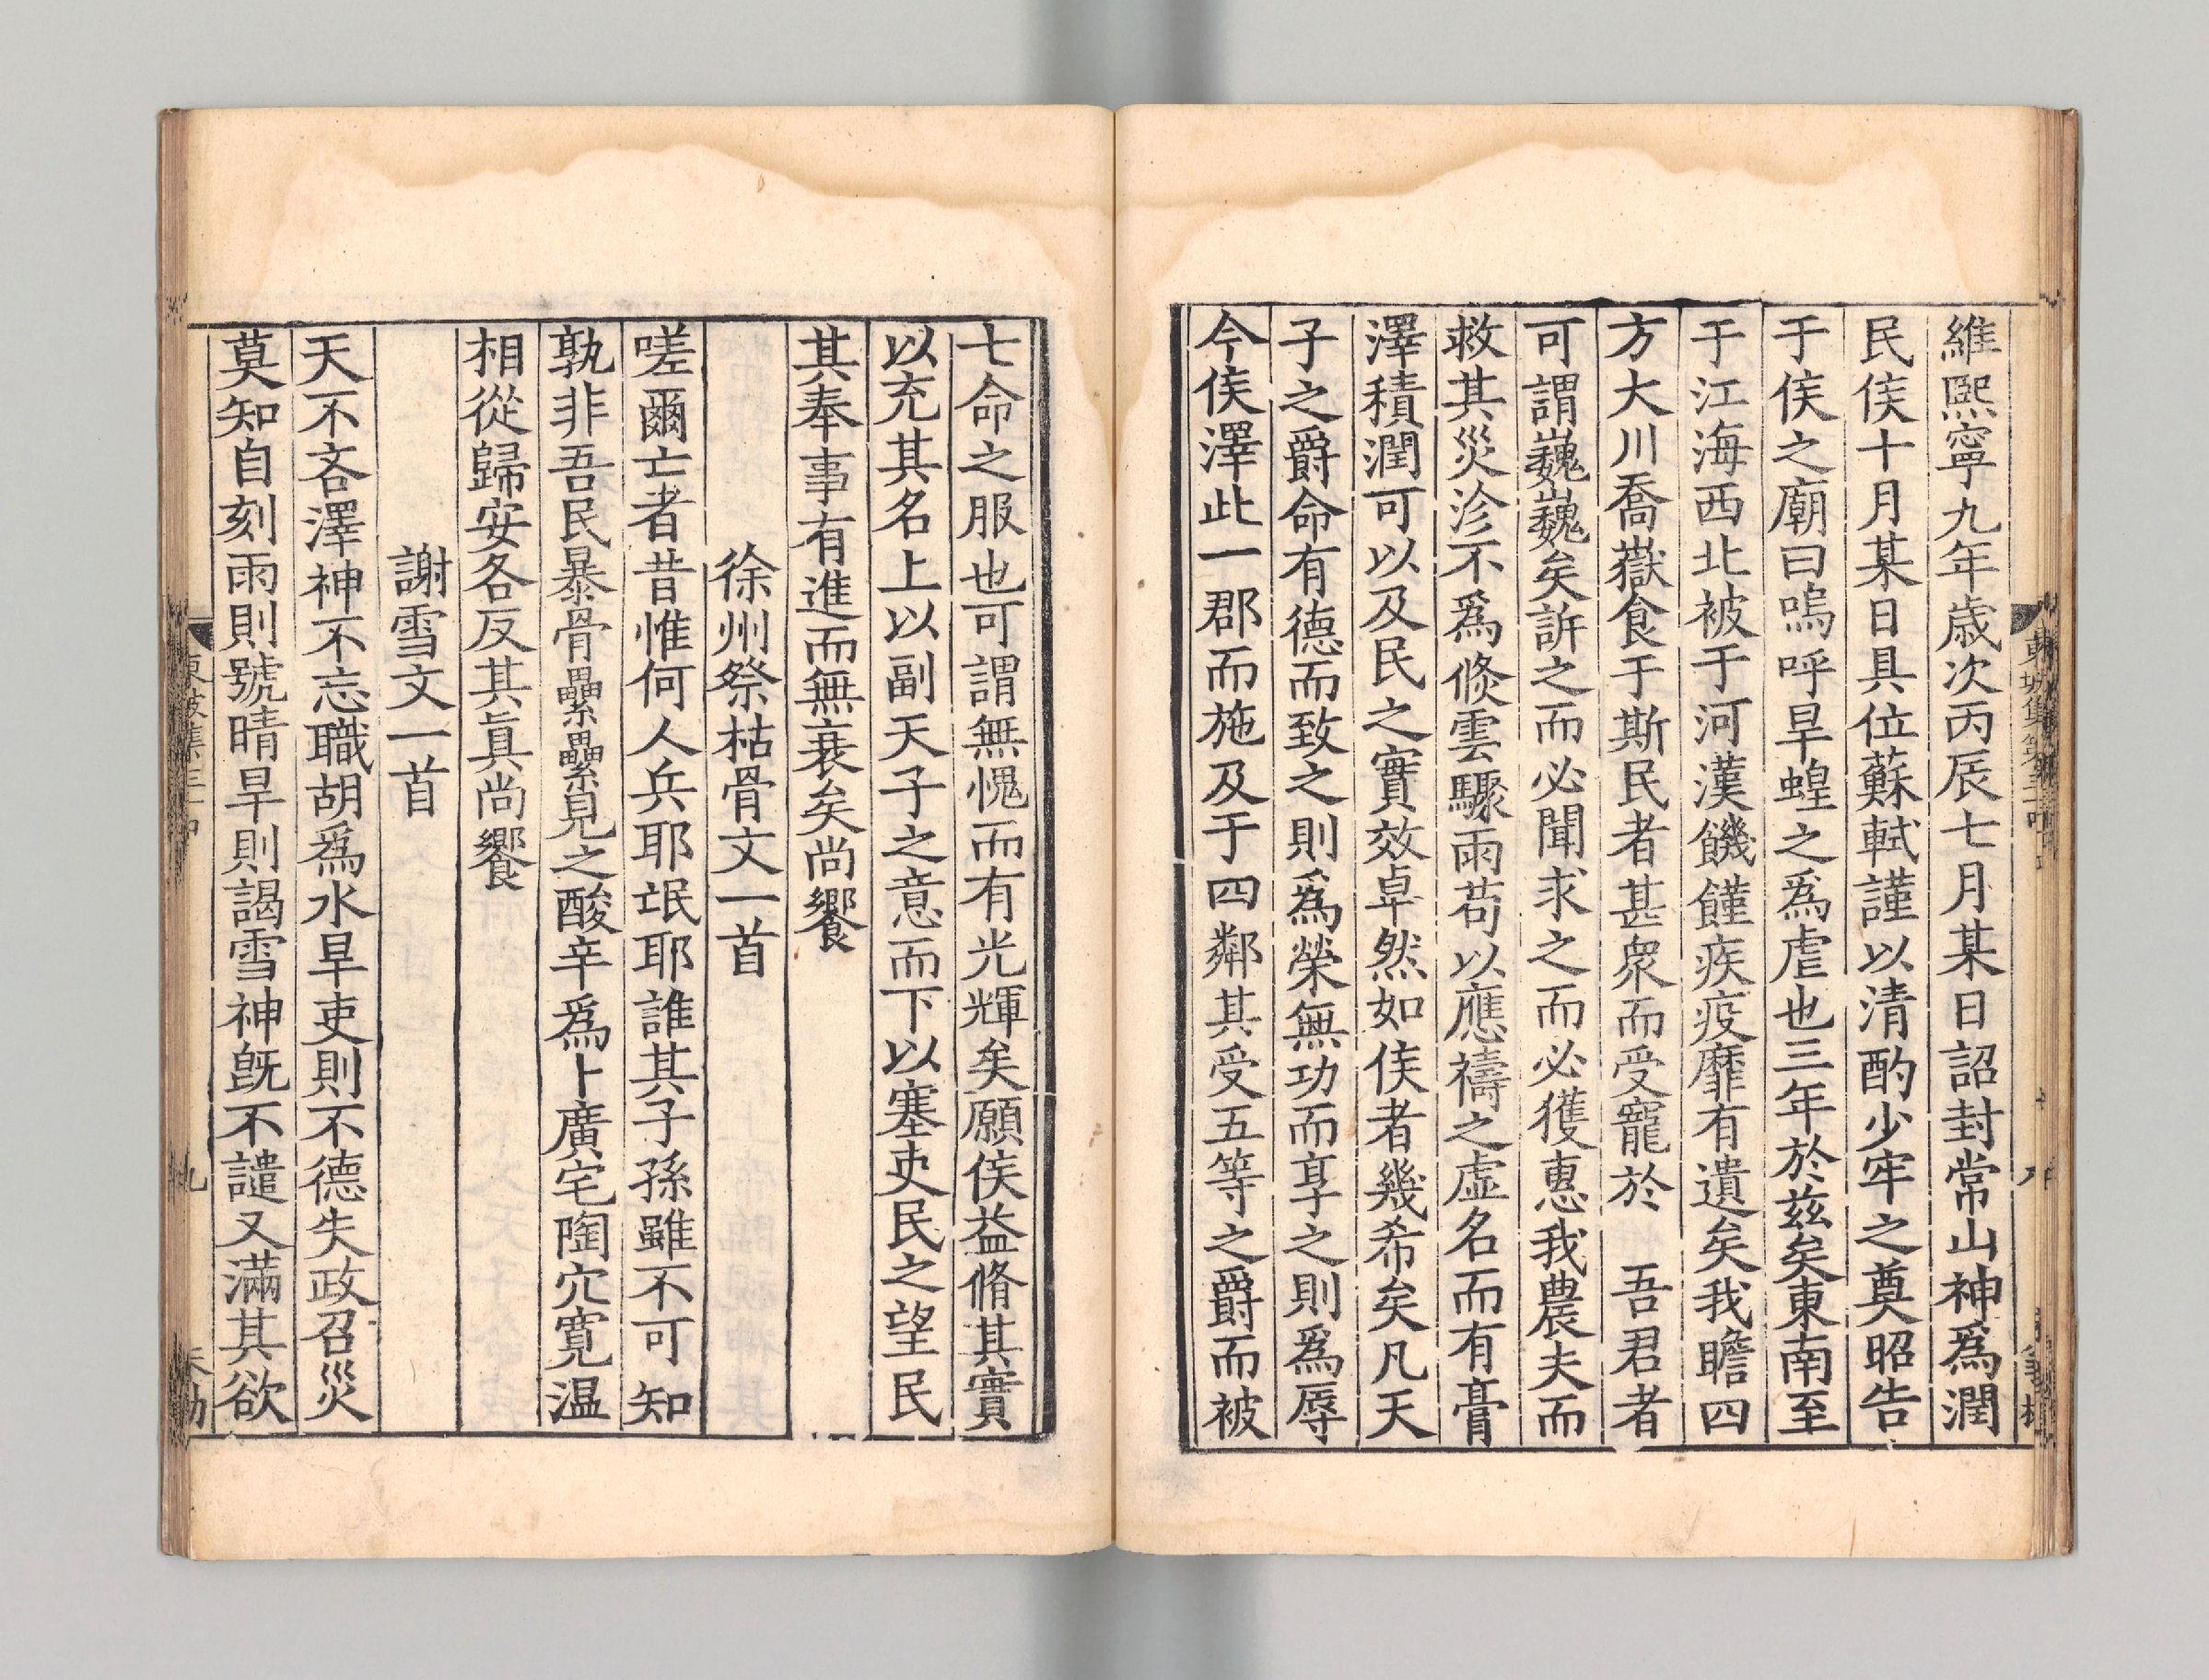 維熙寧九年歲次丙辰七月某日詔封常山神爲潤
民侯十月某日具位蘇軾謹以清酌少牢之奠昭告
于侯之廟曰嗚呼旱蝗之爲虐也三年於茲矣東南至
于江海西北被于河漢饑饉疾疫靡有遺矣我瞻四
方大川喬嶽食于斯民者甚衆而受寵於 吾君者
可謂巍巍矣訴之而必聞求之而必獲惠我農夫而
救其災沴不爲倏雲驟雨苟以應禱之虛名而有膏
澤積潤可以及民之實效卓然如侯者幾希矣凡天
子之爵命有德而致之則爲榮無功而享之則爲辱
今侯澤此一郡而施及于四鄰其受五等之爵而被
七命之服也可謂無愧而有光輝矣願侯益脩其實
以充其名上以副天子之意而下以塞吏民之望民
其奉事有進而無衰矣尚饗
徐州祭枯骨文一首
嗟爾亡者昔惟何人兵耶氓耶誰其子孫雖不可知
孰非吾民暴骨纍纍見之酸辛爲卜廣宅陶穴寬温
相從歸安各反其眞尚饗
謝雪文一首
天不吝澤神不忘職胡爲水旱吏則不德失政召災
莫知自刻雨則號晴旱則謁雪神旣不譴又滿其欲